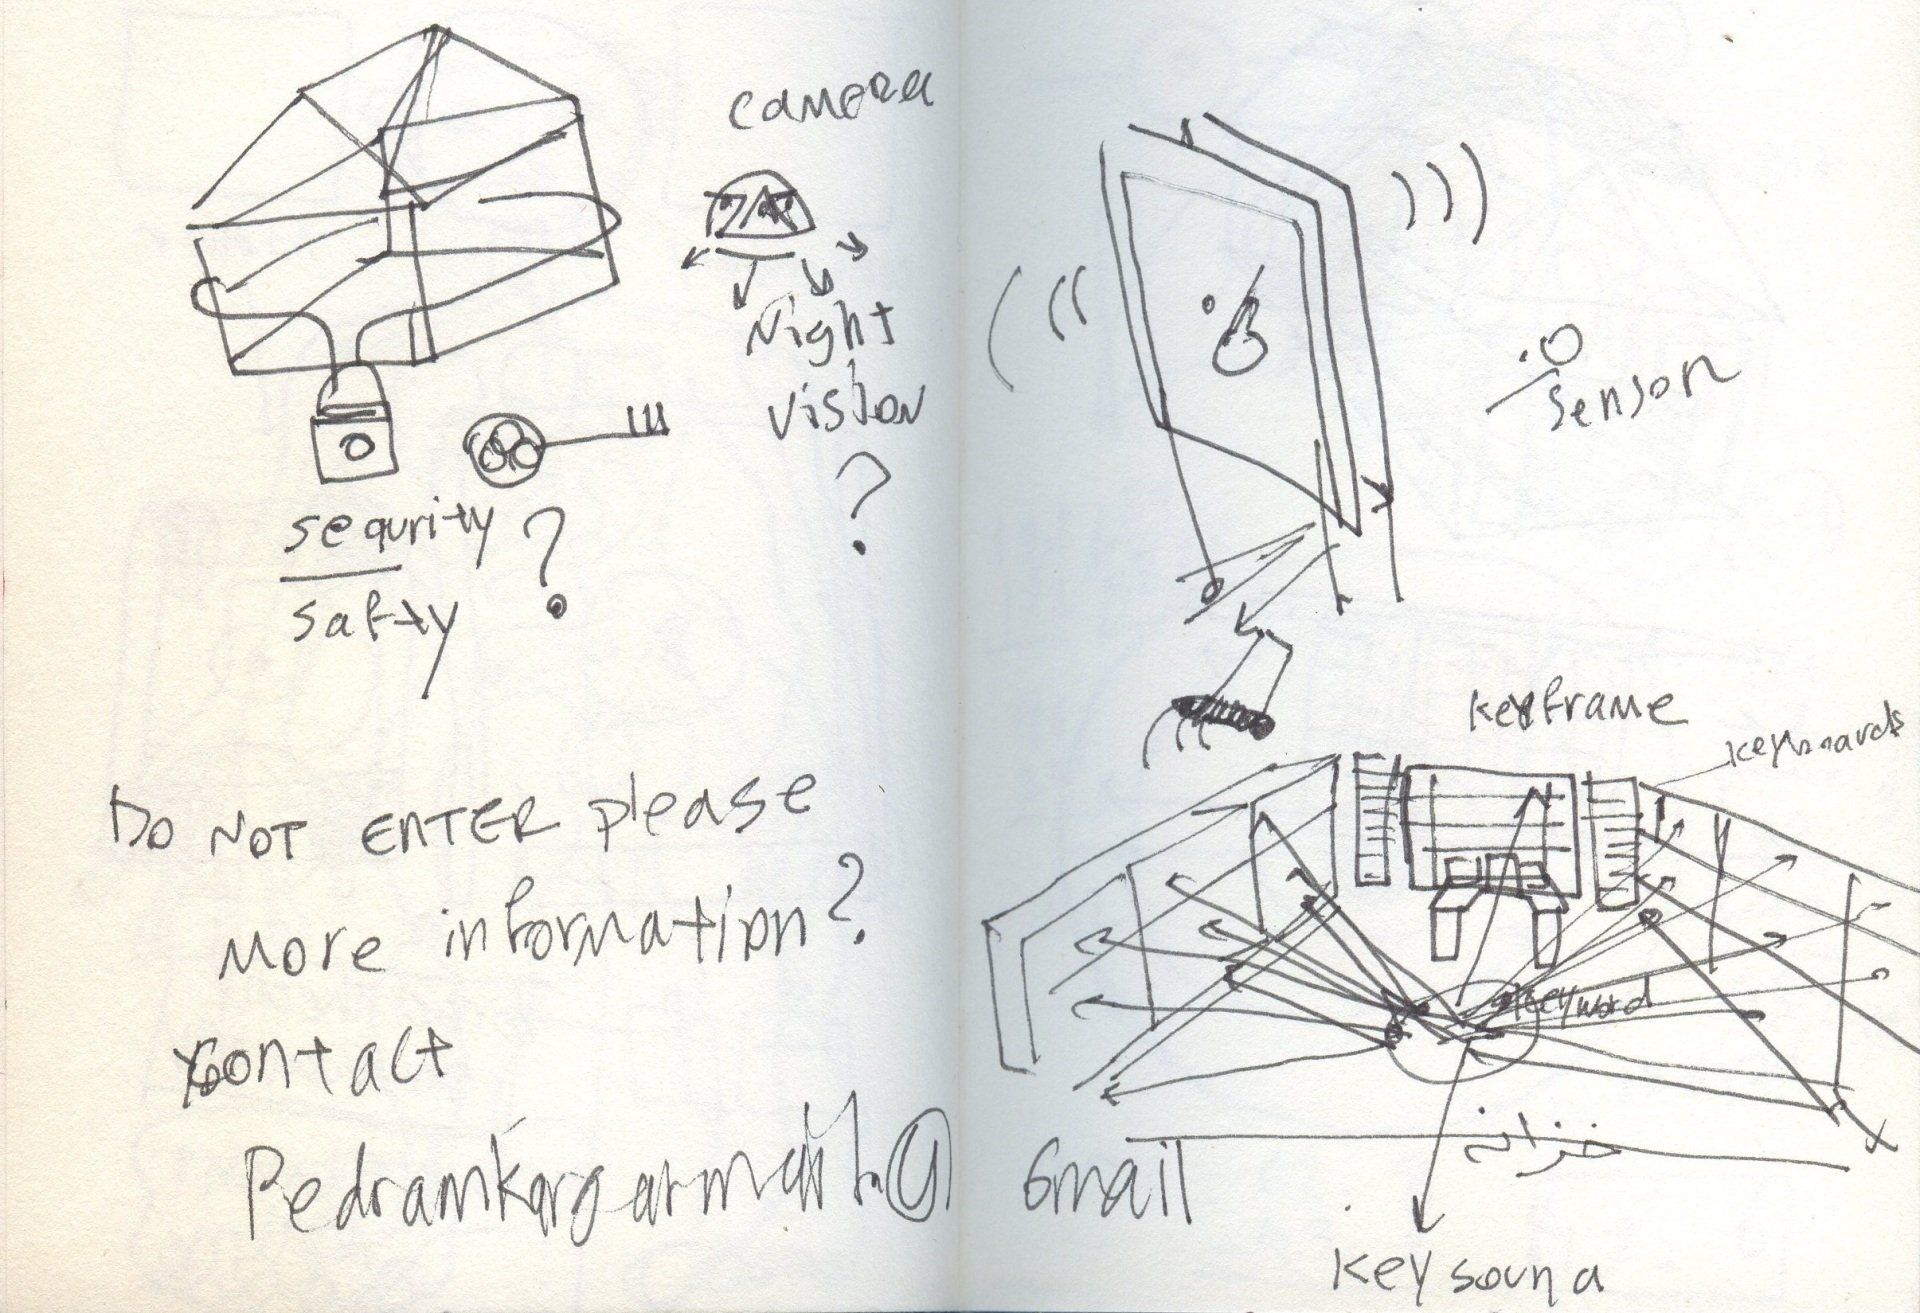 camera
Night
vision
?
sequrity
safty
?
Do NOT ENTER please
more information?
contact
@ Gmail
sensor
keyframe
keyboards
keyword
خزانه
key sound